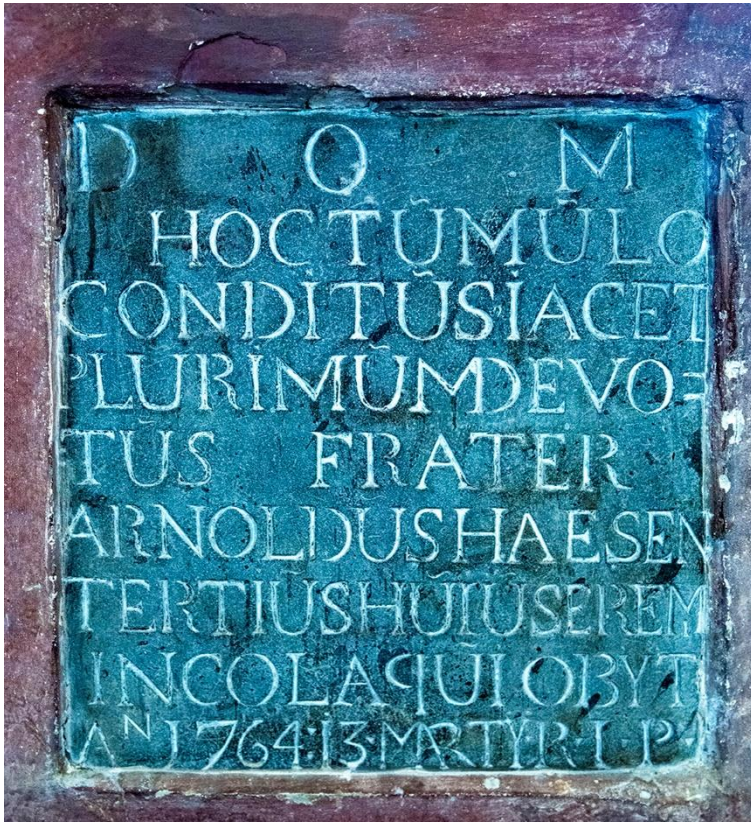 D O M
HOC TŪMŪLO
CONDITŪS IACET
PLŪRIMŪM DEVO=
TŪS FRATER
ARNOLDUS HAESEN
TERTIUS HŪIUS EREM
INCOLA QŪI OBYT
AN 1764·13·MARTY R·I·P·